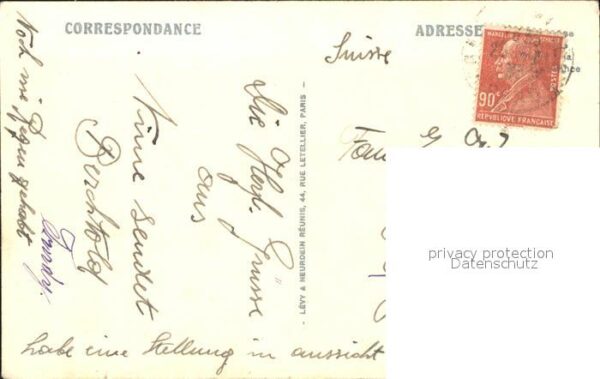 CORRESPONDANCE
ADRESSE
Suisse
MARCELIN BERTHELOT
90c
POSTES
REPUBLIQUE FRANÇAISE
- LÉVY & NEURDEIN RÉUNIS, 44, RUE LETELLIER, PARIS -
Die Herzl. Grüsse
aus
sendet
Berchtold
Noch nie Regen gehabt
habe eine Stellung in aussicht
privacy protection
Datenschutz